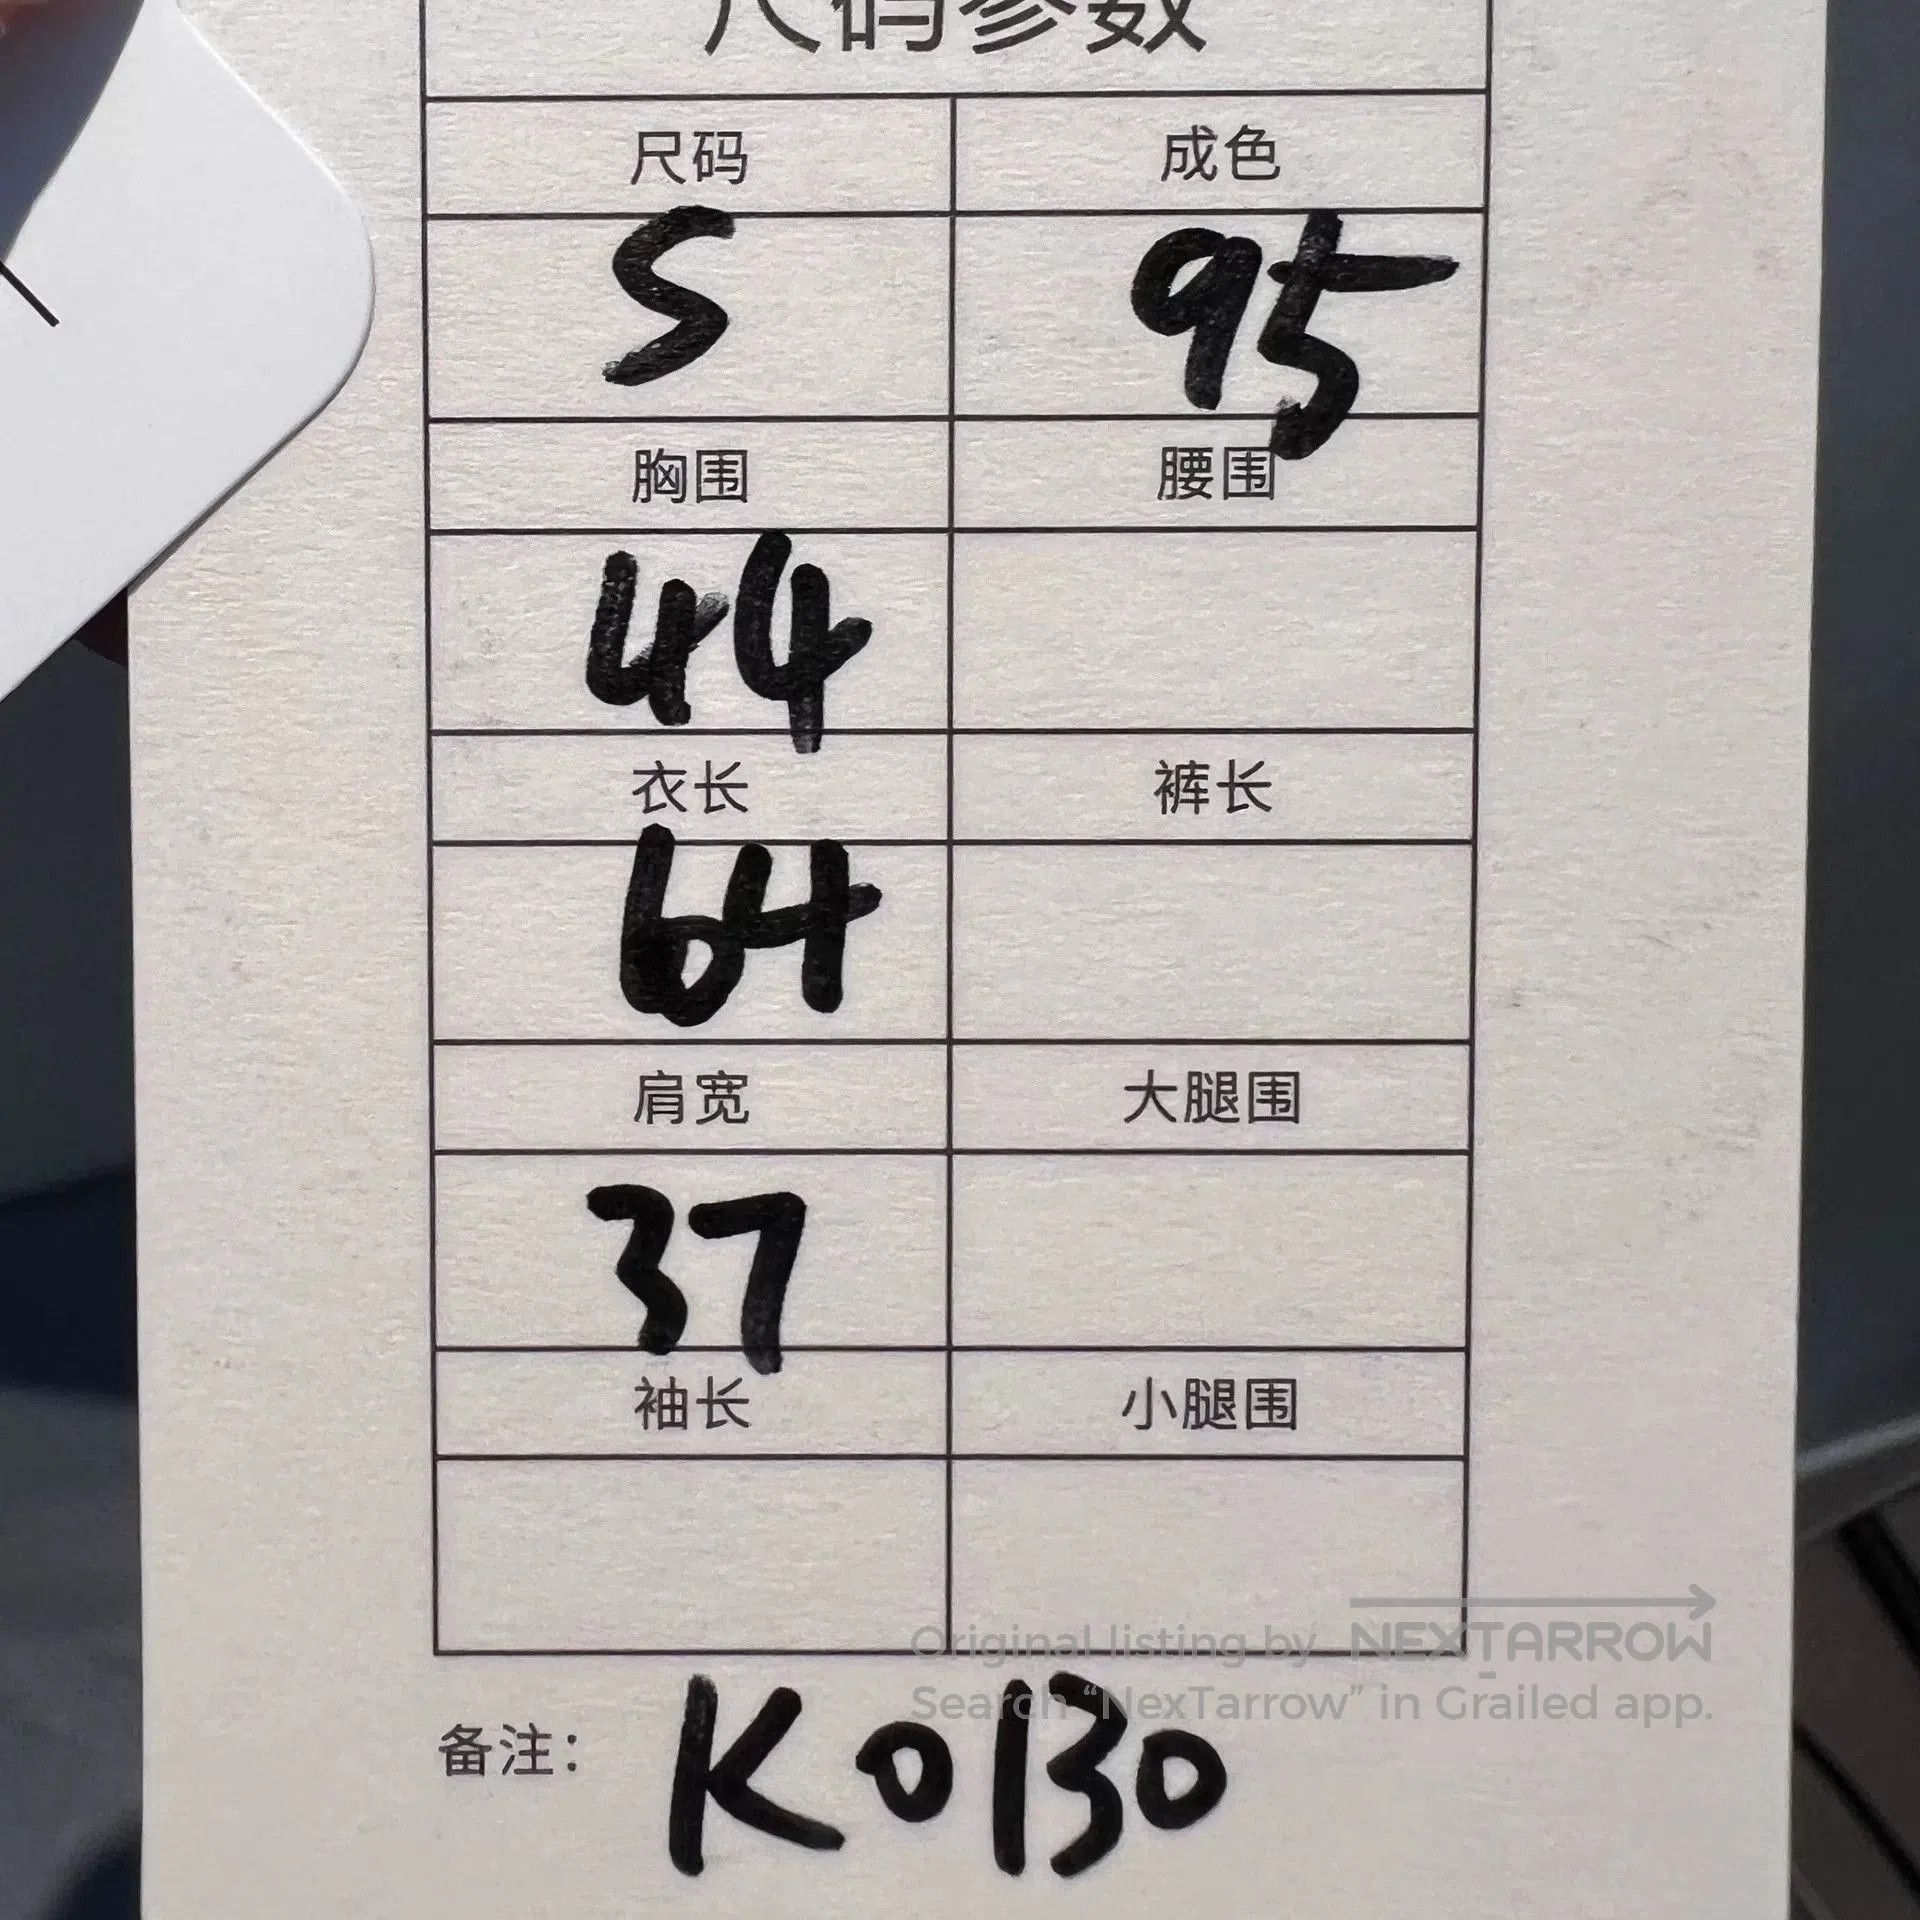 尺码参数
尺码 成色
S 95
胸围 腰围
44
衣长 裤长
64
肩宽 大腿围
37
袖长 小腿围
Original listing by NEXTARROW
Search “NexTarrow” in Grailed app.
备注： K0130